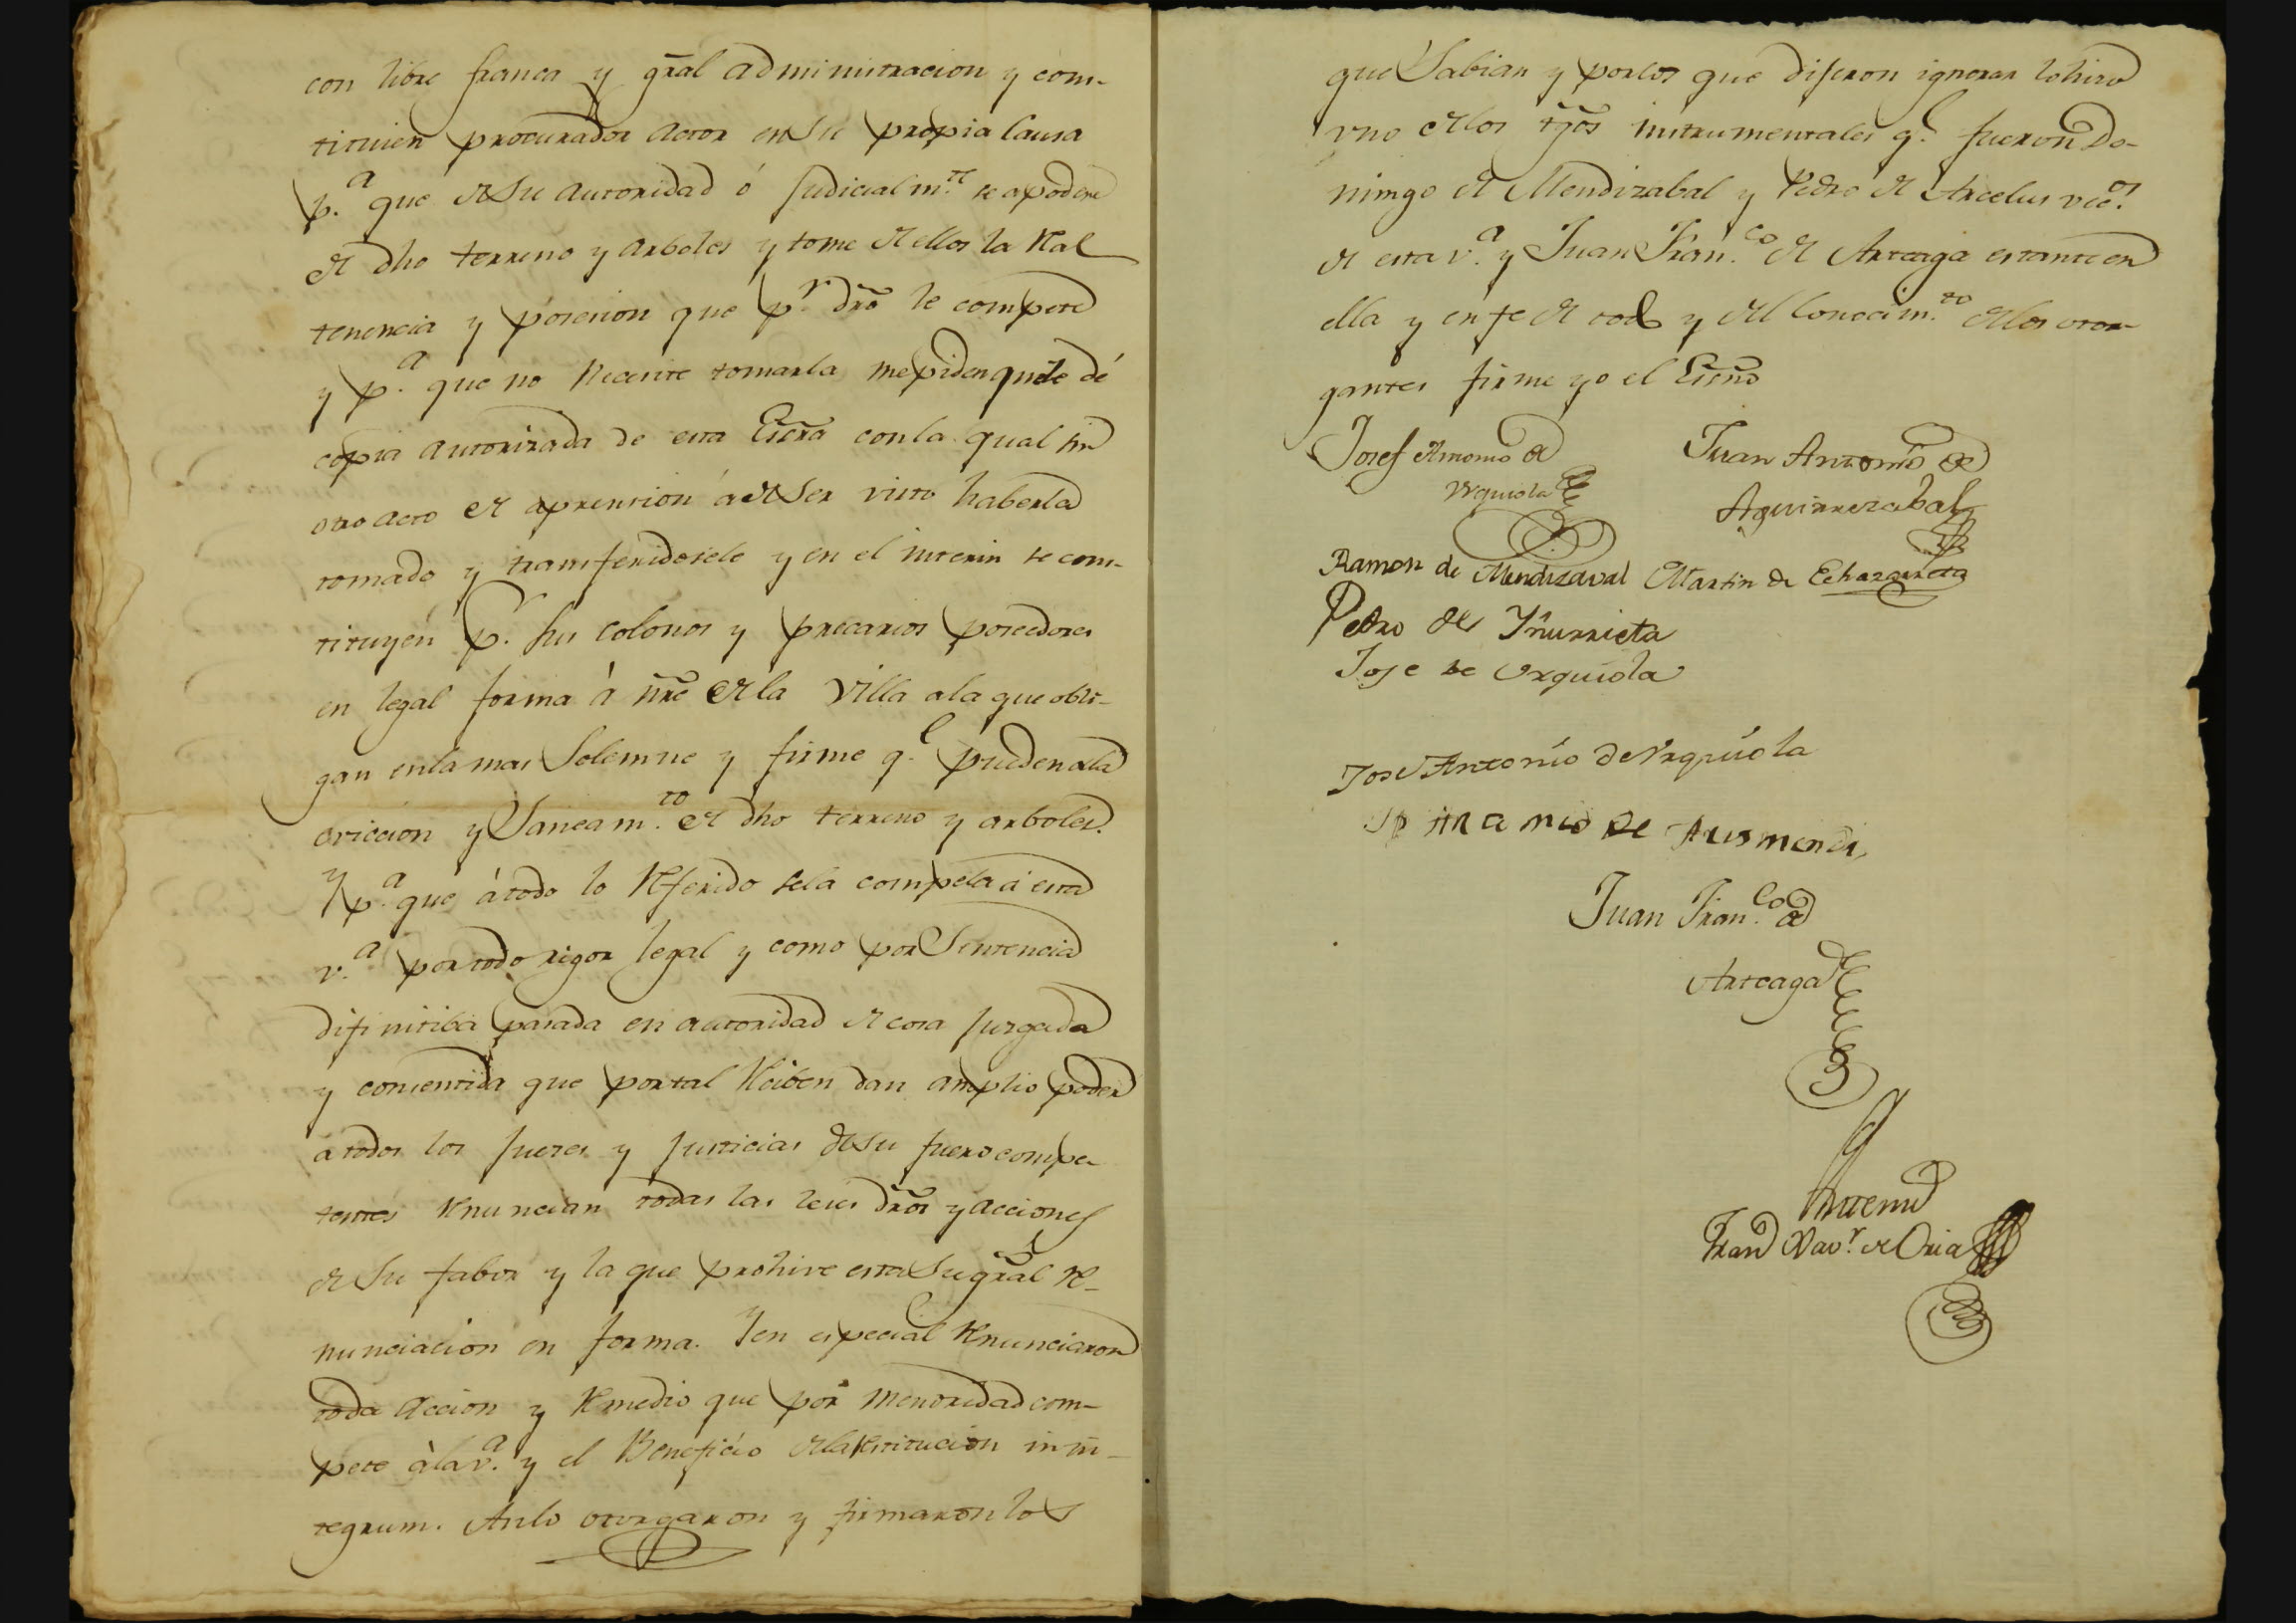 con libre franca y gral administracion y cons-
tituien procurador actor en su propia causa
p.a que de su autoridad ó judicialm.te se apodere
de dho terreno y arboles y tome de ellos la Real
tenencia y posesion que p.r dro le compete
y p.a que no necesite tomarla me piden que le dé
copia autorizada de esta Escra con la qual sin
otro acto de aprension á de ser visto haberla
tomado y transferidosele y en el interin se cons-
tituyen p. sus colonos y precarios poseedores
en legal forma á nre de la villa a la que obli-
gan en la mas solemne y firme q.e pueden a la
eviccion y saneam.to de dho terreno y arboles.
Y p.a que á todo lo referido se la compela á esta
v.a por todo rigor legal y como por Sentencia
difinitiba pasada en autoridad de cosa juzgada
y consentida que por tal reciben dan amplio poder
á todos los jueces y justicias de su fuero compe-
tentes renuncian todas las leies dros y acciones
de su fabor y la que prohive esta su gral re-
nunciacion en forma. Y en especial renunciaron
toda accion y remedio que por menoridad com-
pete á la v.a y el Beneficio de la restitucion in in-
tegrum. Asi lo otorgaron y firmaron los
que Sabian y por los que dijeron ignorar lo hizo
vno de los tgos instrumentales q.e fueron Do-
mingo de Mendizabal y Pedro de Arcelus vec.os
de esta v.a y Juan Fran.co de Arteaga estante en
ella y en fe de todo y del conocim.to de los otor-
gantes firme yo el Esno
Josef Antonio de
Vrquiola
Juan Antonio de
Aguirrezabal
Ramon de Mendizaval Martin de Echazarreta
Pedro de Yñurrieta
Jose de Vrquiola
Jose Antonio de Vrquiola
Ignacio de Arismendi
Juan Fran.co de
Arteaga
Antemi
Fran.co Xav.r de Oria